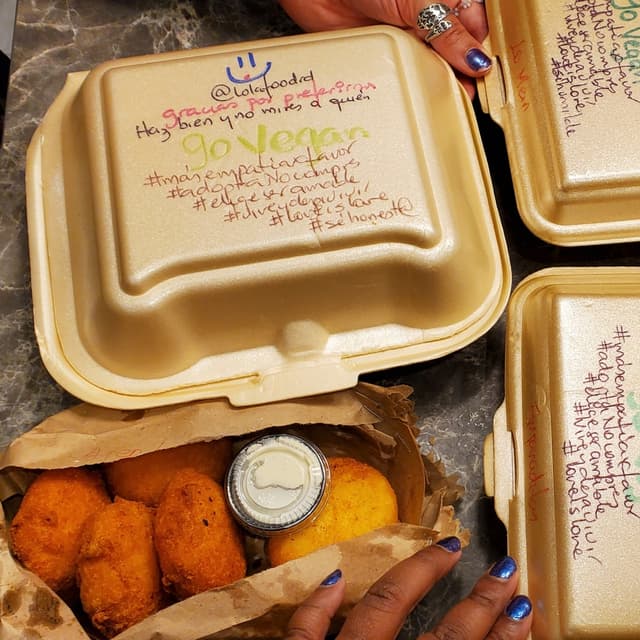 @lolasfoodrd
gracias por preferirnos
Haz bien y no mires a quién
go Vegan
#masempatiaxfavor
#adoptaNocompres
#eligeseramable
#viveydejavivir
#loveislove
#séhonest@
go Vegan
#masempatiaxfavor
#adoptaNocompres
#eligeseramable
#viveydejavivir
#loveislove
#sehumilde
#masempatiaxfavor
#adoptaNocompres
#eligeseramable
#viveydejavivir
#loveislove